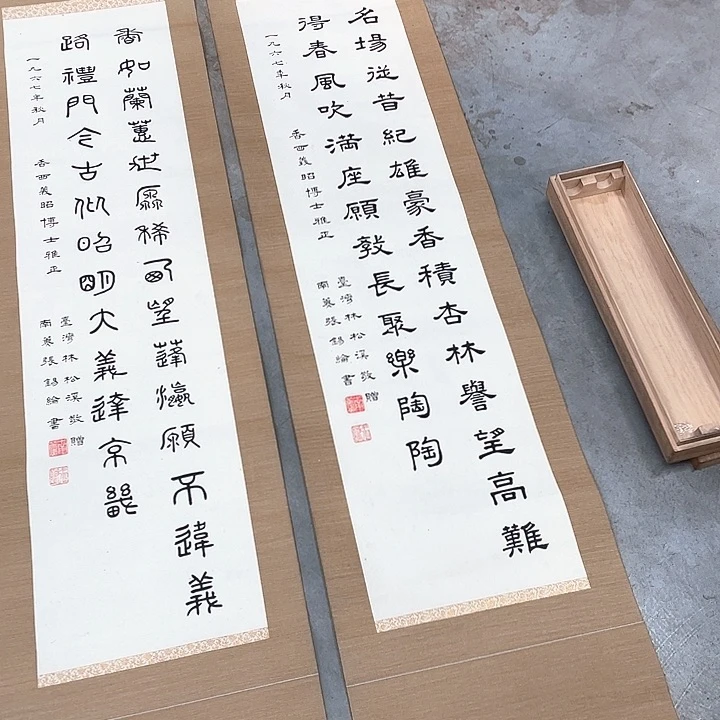 名場從昔紀雄豪香積杏林譽望高難
得春風吹満座願敎長聚樂陶陶
一九六七年秋月 香西義昭博士雅正
臺灣林松溪敬贈
南張錫綸書
香如蘭蕙世稀西望蓬瀛願不違義
路禮門今古似昭明大義達京畿
一九六七年秋月 香西義昭博士雅正
臺灣林松溪敬贈
南張錫綸書